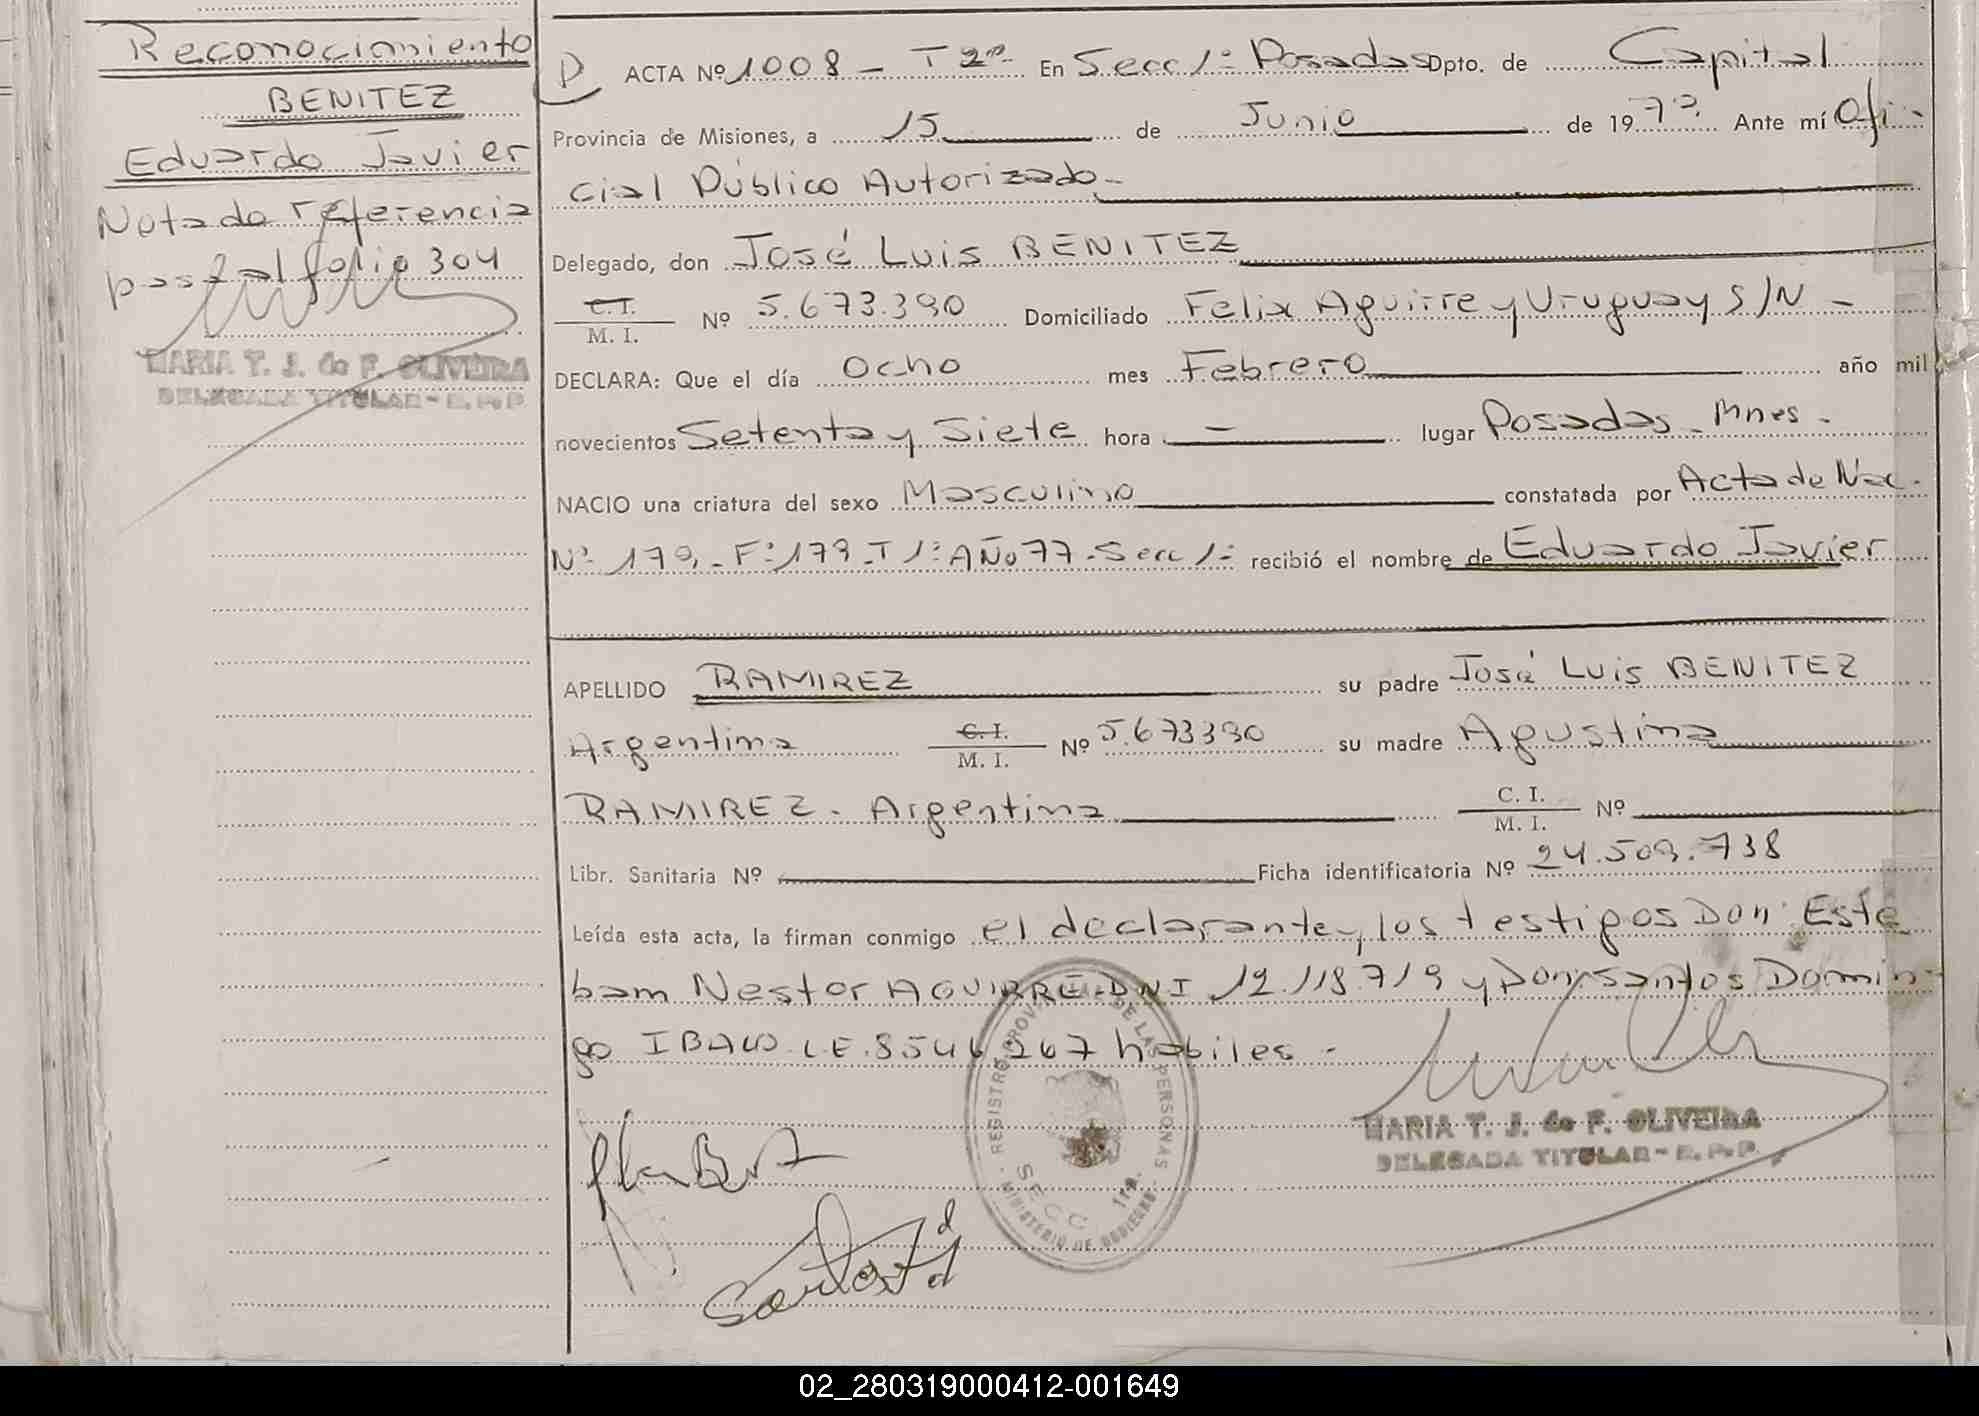 Reconocimiento
BENITEZ
Eduardo Javier
Notado referencia
postal folio 304
MARIA T. J. de F. OLIVEIRA
DELEGADA TITULAR - R. P. P.
D ACTA Nº 1008 - T 2º - En Secc 1ª Posadas Dpto. de Capital
Provincia de Misiones, a 15 de Junio de 1979. Ante mí Ofi-
cial Público Autorizado-
Delegado, don José Luis BENITEZ
C.I. / M. I. Nº 5.673.390 Domiciliado Felix Aguirre y Uruguay S/N -
DECLARA: Que el día Ocho mes Febrero año mil
novecientos Setenta y Siete hora - lugar Posadas - Mnes -
NACIO una criatura del sexo Masculino constatada por Acta de Nac.
Nº 179. - Fº 179 - T 1º Año 77 - Secc 1ª recibió el nombre de Eduardo Javier
APELLIDO RAMIREZ su padre José Luis BENITEZ
Argentina C.I. / M. I. Nº 5.673390 su madre Agustina
RAMIREZ - Argentina C. I. / M. I. Nº
Libr. Sanitaria Nº Ficha identificatoria Nº 24.509.738
Leída esta acta, la firman conmigo el declarante y los testigos Don: Este
bam Nestor AGUIRRE - DNI 12.118.719 y Don Santos Domin-
go L.E. 8546267 habiles -
REGISTRO PROV. DE LAS PERSONAS
SECC. 1ra.
MINISTERIO DE GOBIERNO
MARIA T. J. de F. OLIVEIRA
DELEGADA TITULAR - R. P. P.
02_280319000412-001649